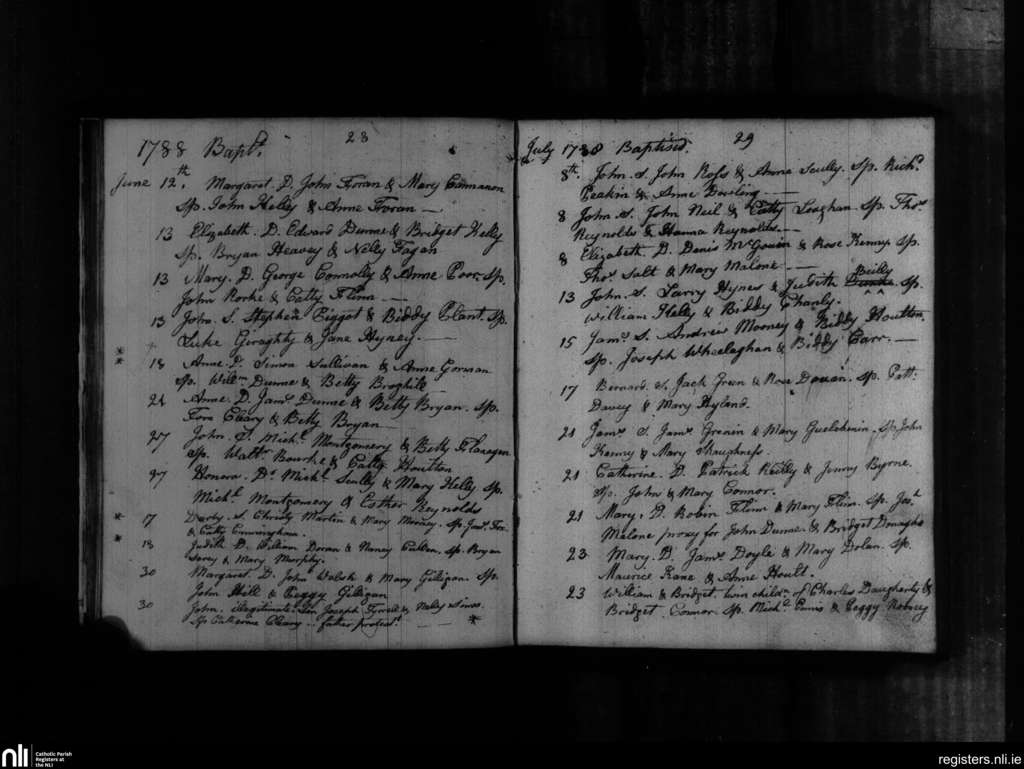 1788 Bapt.d 28
June 12th. Margaret D. John Foran & Mary Cannanon
Sp. John Kelly & Anne Foran —
13 Elizabeth. D. Edward Dunne & Bridget Kelly
Sp. Bryan Heavey & Nelly Fagan
13 Mary. D. George Connolly & Anne Poor. Sp.
John Rorke & Catty Flinn —
13 John. S. Stephen Piggot & Biddy Plant. Sp.
Luke Giraghty & Jane Hyney. —
18 Anne. D. Simon Sullivan & Anne Gorman
Sp. Willm. Dunne & Betty Broghill
24 Anne. D. Jams. Dunne & Betty Bryan. Sp.
Cleary & Betty Bryan —
27 John. S. Michl. Montgomery & Betty Flanagan
Sp. Waltr. Bourke & Catty Houtton
27 Honora. Dr. Michl. Scully & Mary Kelly Sp.
Michl. Montgomery & Esther Reynolds
* 17 Darby. S. Christy Martin & Mary Mooney. Sp. Jams.
& Catty Cunningham.
* 18 Judith D. William Doran & Nancy Cullen. Sp. Bryan
& Mary Murphy.
30 Margaret. D. John Walsh & Mary Gilligan. Sp.
John Hill & Peggy Gilligan
30 John. illegitimate Son Joseph & Nelly
Sp. Catherine Cleary .. father protest. — — *
July 1788 Baptised. 29
8th. John. S. John Ross & Anne Scully. Sp. Richd.
Peakin & Anne Dowling —
8 John. S. John Neil & Catty Loaghan. Sp. Thos.
Reynolds & Hanna Reynolds. —
8 Elizabeth. D. Denis McGouin & Rose Kenny. Sp.
Thos. Salt & Mary Malone —
Reilly
13 John. S. Larry Hynes & Judith Dunne Sp.
William Kelly & Biddy Chanly.
15 Jams. S. Andrew Mooney & Biddy Houtton.
Sp. Joseph Wheelaghan & Biddy Carr. —
17 Bernard. S. Jack Green & Rose Doran. Sp. Patt:
Davey & Mary Hyland.
21 Jams. S. Jams. Grenin & Mary Sp. John
Kenny & Mary Shaughness.
21 Catherine. D. Patrick Reilly & Jenny Byrne.
Sp. John & Mary Connor.
21 Mary. D. Robin Flinn & Mary Flinn. Sp. Josh.
Malone proxy for John Dunne & Bridget Donagho
23 Mary. D. Jams. Doyle & Mary Dolan. Sp.
Maurice Kane & Anne Hoult.
23 William & Bridget twin childn. of Charles Daugherty &
Bridget Connor. Sp. Michl. Ennis & Peggy
nli
Catholic Parish
Registers at
the NLI
registers.nli.ie